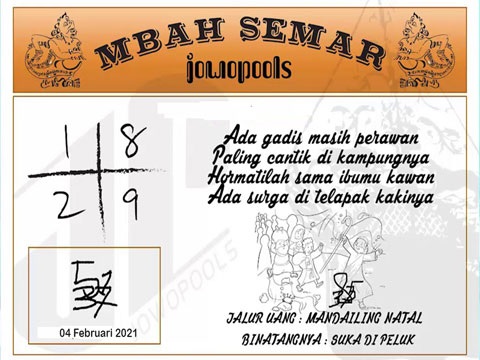 MBAH SEMAR
jowopools
1 8
2 9
Ada gadis masih perawan
Paling cantik di kampungnya
Hormatilah sama ibumu kawan
Ada surga di telapak kakinya
04 Februari 2021
JALUR UANG : MANDAILING NATAL
BINATANGNYA : SUKA DI PELUK